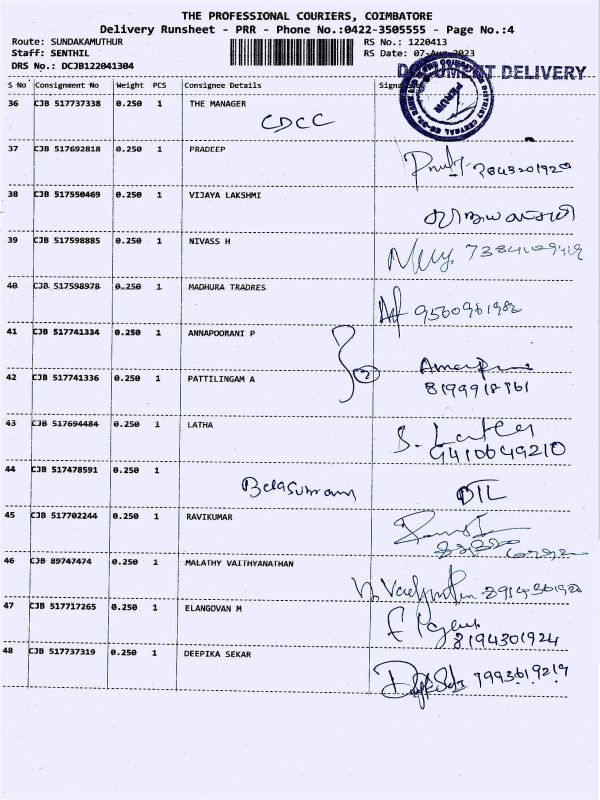 THE PROFESSIONAL COURIERS, COIMBATORE
Delivery Runsheet - PRR - Phone No.:0422-3505555 - Page No.:4
Route: SUNDAKAMUTHUR RS No.: 1220413
Staff: SENTHIL RS Date: 07-Aug-2023
DRS No.: DCJB122041304 DOCUMENT DELIVERY
S No Consignment No Weight PCS Consignee Details
36 CJB 517737338 0.250 1 THE MANAGER
CDCC
37 CJB 517692818 0.250 1 PRADEEP
38 CJB 517550469 0.250 1 VIJAYA LAKSHMI
39 CJB 517598885 0.250 1 NIVASS H
40 CJB 517598978 0.250 1 MADHURA TRADRES
9560961982
41 CJB 517741334 0.250 1 ANNAPOORANI P
42 CJB 517741336 0.250 1 PATTILINGAM A
2
8199918161
43 CJB 517694484 0.250 1 LATHA
S. Latha
9410649210
44 CJB 517478591 0.250 1
45 CJB 517702244 0.250 1 RAVIKUMAR
46 CJB 89747474 0.250 1 MALATHY VAITHYANATHAN
47 CJB 517717265 0.250 1 ELANGOVAN M
8194301924
48 CJB 517737319 0.250 1 DEEPIKA SEKAR
7993619219